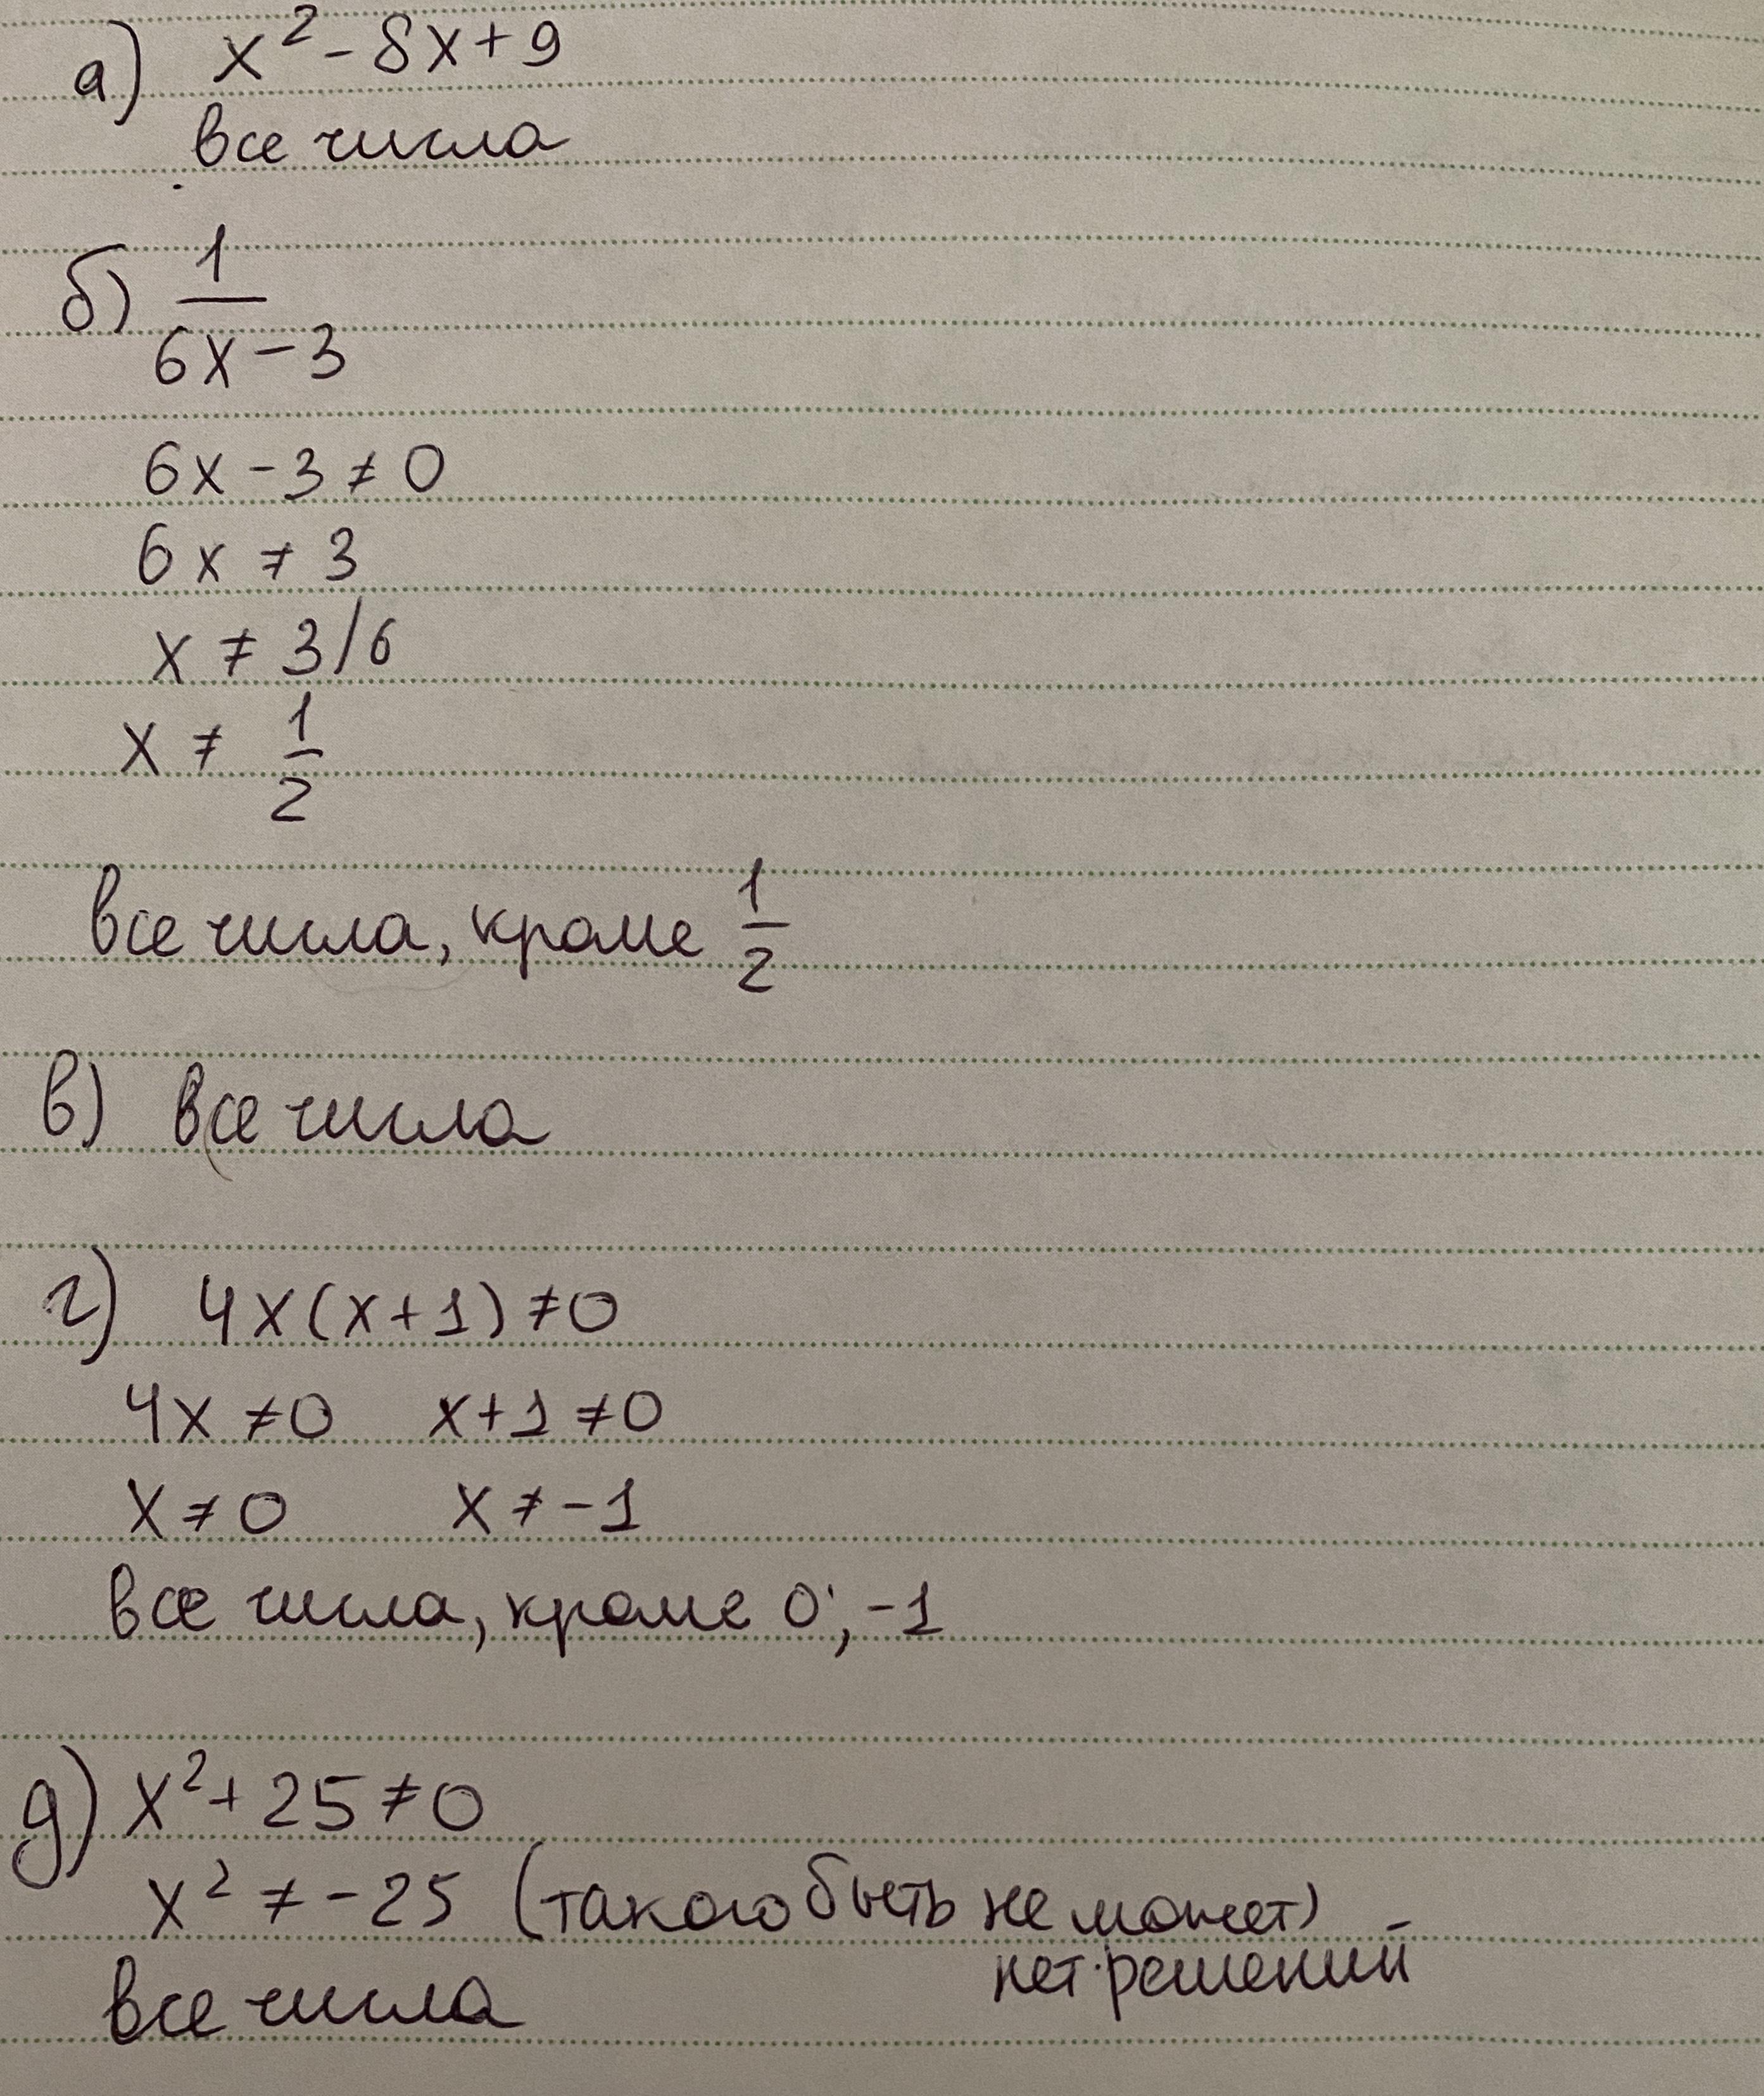 а) x² - 8x + 9
все числа
б) 1/(6x - 3)
6x - 3 ≠ 0
6x ≠ 3
x ≠ 3/6
x ≠ 1/2
все числа, кроме 1/2
в) все числа
г) 4x(x+1) ≠ 0
4x ≠ 0 x+1 ≠ 0
x ≠ 0 x ≠ -1
все числа, кроме 0; -1
д) x² + 25 ≠ 0
x² ≠ -25 (такого быть не может) -
нет решений
все числа